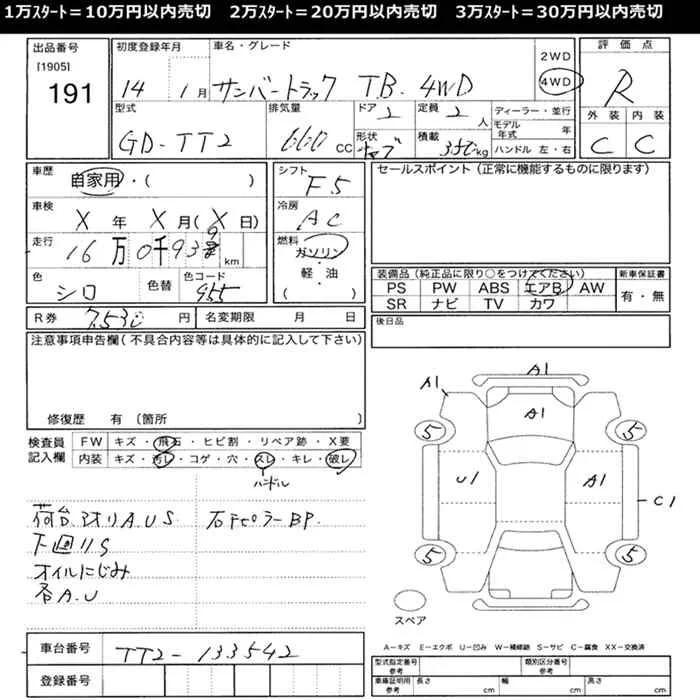 1万スタート＝10万円以内売切　2万スタート＝20万円以内売切　3万スタート＝30万円以内売切
出品番号
[1905]
191
初度登録年月
14 1月
車名・グレード
サンバートラック T.B. 4WD
2WD
4WD
評価点
R
外装 内装
C C
型式
GD-TT2
排気量
660 CC
ドア
2
定員
2 人
形状
積載
350 kg
ディーラー・並行
モデル年式 年
ハンドル 左・右
車歴
自家用・( )
車検
X年 X月(X日)
走行
16万0千93 9 km
色
シロ
色替
色コード
955
シフト
F5
冷房
AC
燃料
ガソリン
・
軽・油
( )
セールスポイント（正常に機能するものに限ります）
装備品（純正品に限り○をつけてください）
PS PW ABS エアB AW
SR ナビ TV カワ
新車保証書
有・無
R券 7,530 円
名変期限 月 日
後日品
注意事項申告欄（不具合内容等は具体的に記入して下さい）
修復歴 有〔箇所
検査員記入欄
FW キズ・飛石・ヒビ割・リペア跡・X要
内装 キズ・汚レ・コゲ・穴・スレ・キレ・破レ
ハンドル
荷台.アオリA.U.S 右Fピラー BP.
下廻りS
オイルにじみ
各A.U
A1
A1
A1
5
5
U1
A1
C1
5
5
スペア
車台番号 TT2-133542
登録番号
A－キズ E－エクボ U－凹み W－補修跡 S－サビ C－腐食 XX－交換済
型式指定番号 参考
類別区分番号 参考
車庫証明用 参考
長さ cm
幅 cm
高さ cm